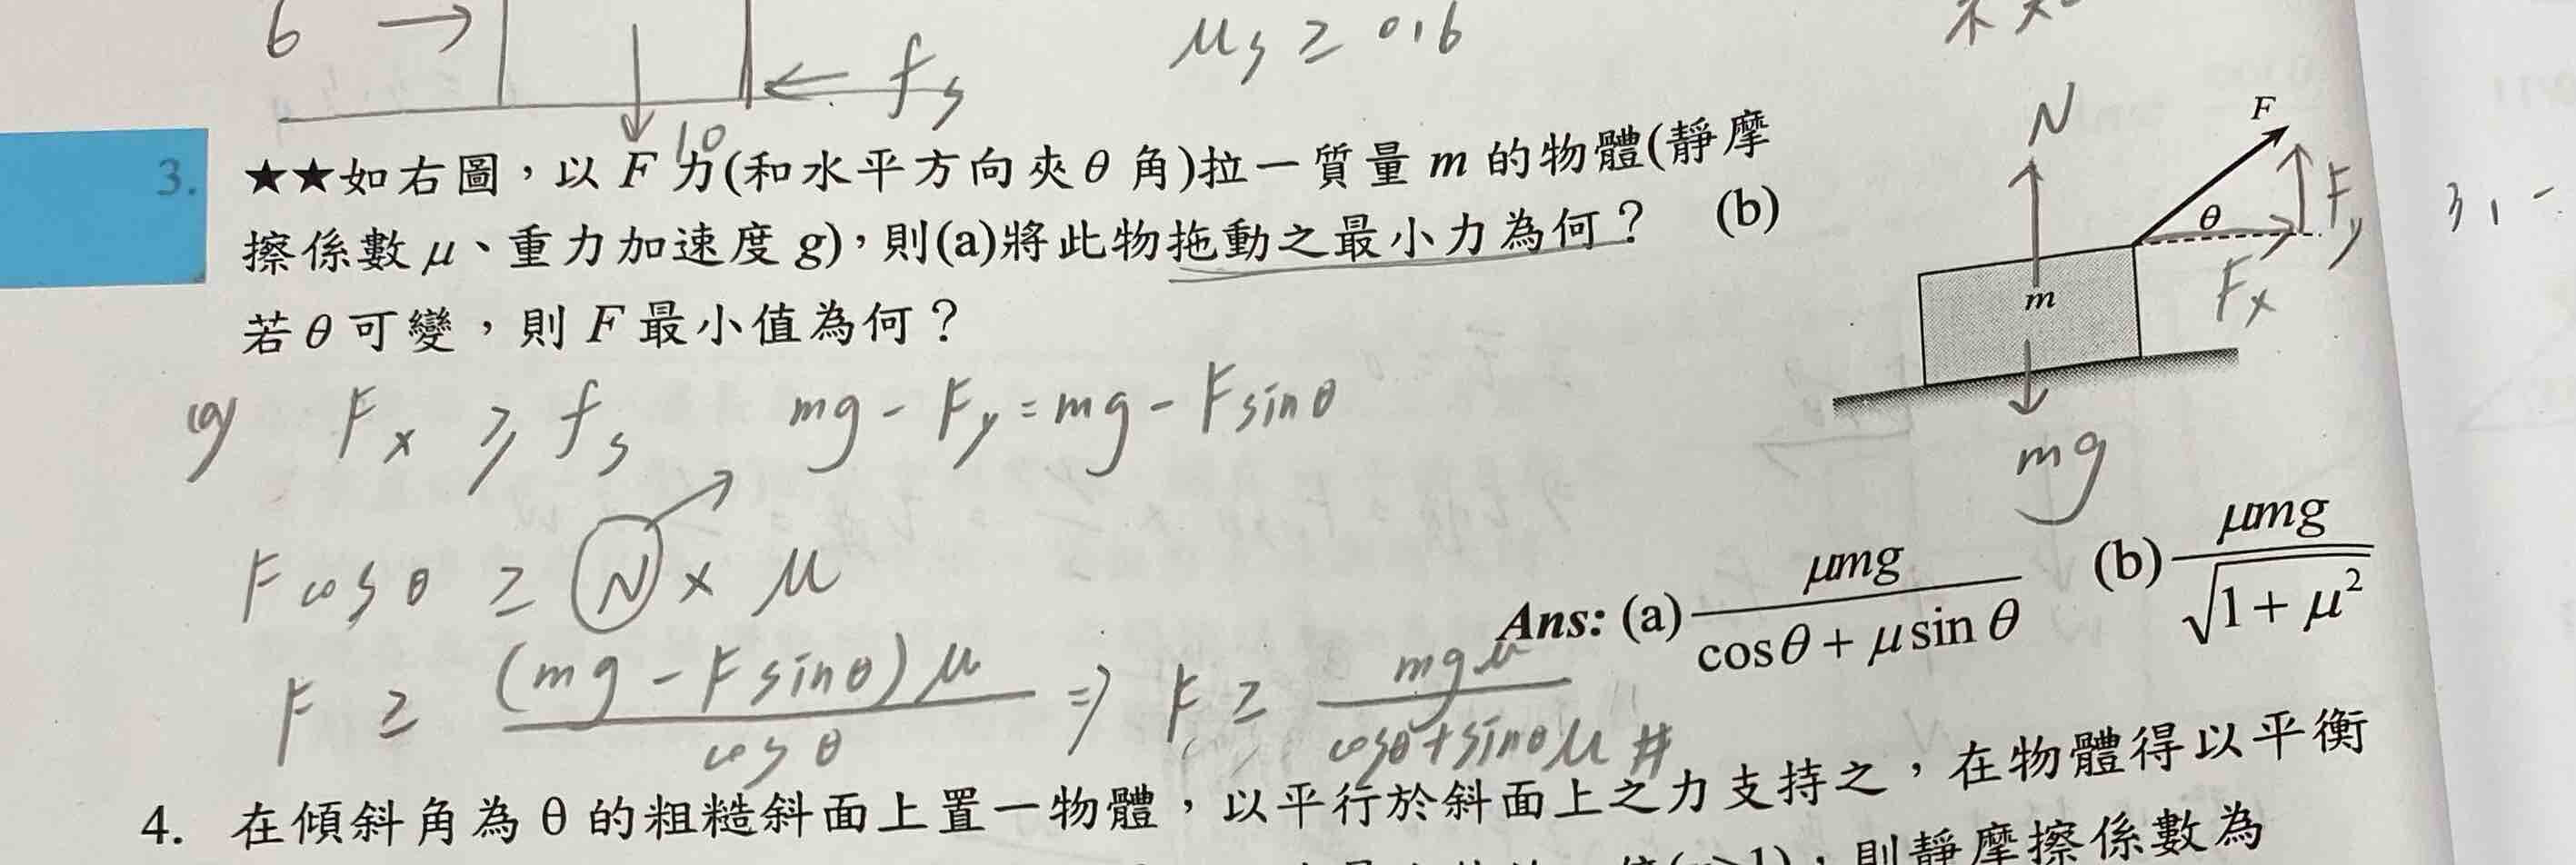 6 → μs ≥ 0.6
← fs
10
N
F
3. ★★如右圖，以 F 力(和水平方向夾 θ 角)拉一質量 m 的物體(靜摩
擦係數 μ、重力加速度 g)，則(a)將此物拖動之最小力為何？ (b)
若 θ 可變，則 F 最小值為何？
θ
Fy
Fx
m
mg
(a) Fx ≥ fs mg - Fy = mg - F sinθ
F cosθ ≥ N × μ
Ans: (a) μmg / (cosθ + μ sinθ) (b) μmg / √(1 + μ²)
F ≥ (mg - F sinθ) μ / cosθ ⇒ F ≥ mgμ / (cosθ + sinθμ) #
4. 在傾斜角為 θ 的粗糙斜面上置一物體，以平行於斜面上之力支持之，在物體得以平衡
，則靜摩擦係數為